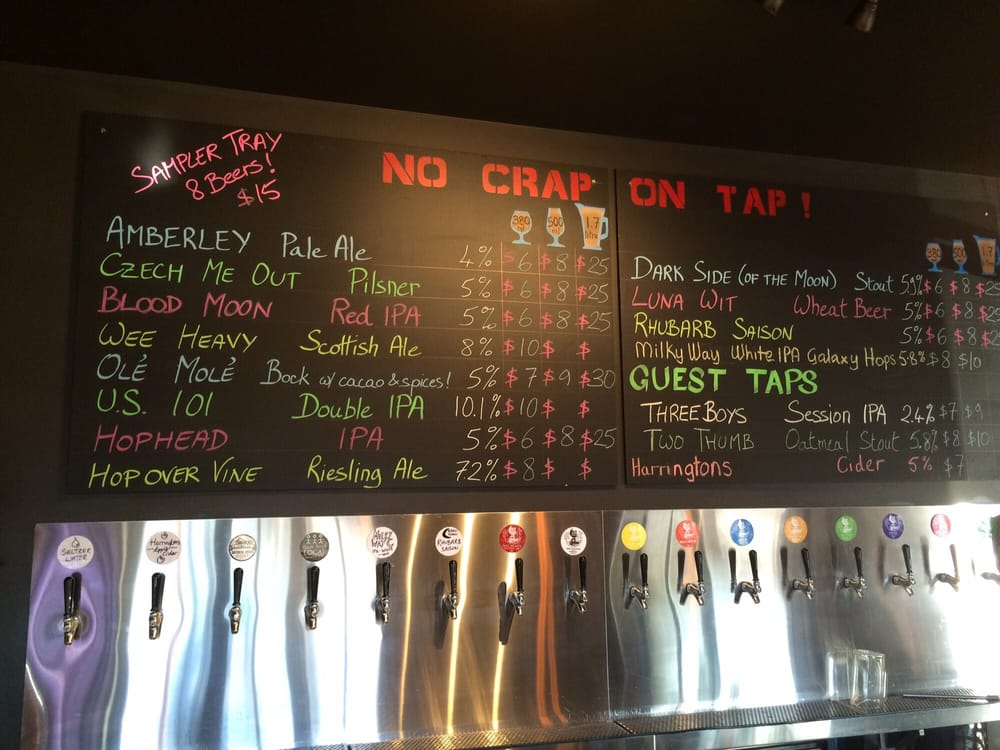 SAMPLER TRAY
8 Beers!
$15
NO CRAP
380 ml 500 ml 1.7 litre
AMBERLEY Pale Ale 4% $6 $8 $25
CZECH ME OUT Pilsner 5% $6 $8 $25
BLOOD MOON Red IPA 5% $6 $8 $25
WEE HEAVY Scottish Ale 8% $10 $ $
OLÉ MOLÉ Bock w/ cacao & spices! 5% $7 $9 $30
U.S. 101 Double IPA 10.1% $10 $ $
HOPHEAD IPA 5% $6 $8 $25
HOP OVER VINE Riesling Ale 7.2% $8 $ $
ON TAP!
380 500 1.7
DARK SIDE (OF THE MOON) Stout 5.9% $6 $8 $25
LUNA WIT Wheat Beer 5% $6 $8 $25
RHUBARB SAISON 5% $6 $8 $2
Milky Way White IPA Galaxy Hops 5.8% $8 $10
GUEST TAPS
THREE BOYS Session IPA 2.4% $7 $9
TWO THUMB Oatmeal Stout 5.8% $8 $10
Harringtons Cider 5% $7
SELTZER WATER
Harringtons Cider
RHUBARB SAISON